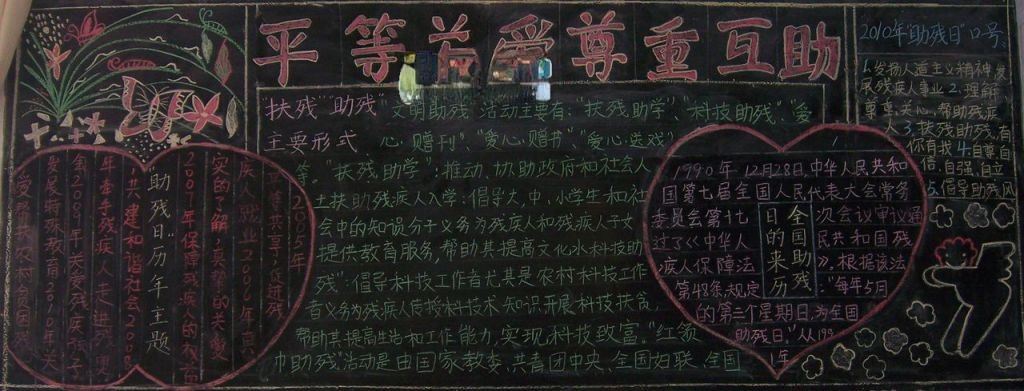 平等关爱尊重互助
扶残"助残"文明助残"活动主要有:"扶残助学"、"科技助残"、"爱
主要形式 心·赠刊"、"爱心·赠书"、"爱心·送戏"
等。"扶残助学":推动、协助政府和社会人
士扶助残疾人入学;倡导大,中,小学生和社
会中的知识分子义务为残疾人和残疾人子女
提供教育服务,帮助其提高文化水科技助
残":倡导科技工作者尤其是农村科技工作
者义务为残疾人传授科技术知识开展科技扶贫,
帮助其提高生活和工作能力,实现科技致富。"红领
巾助残"活动是由国家教委、共青团中央、全国妇联、全国
"助残日"历年主题
2005年
疾人就业2006年
实的了解,真挚的关爱
2007年保障残疾人的权益
,共建和谐社会2008
年牵手残疾人走进残奥
会2009年关爱残疾孩子
发展特殊教育2010年关
全国助残
日的来历
1990年12月28日,中华人民共和
国第七届全国人民代表大会常务
委员会第十七
次会议审议通
过了《中华人
民共和国残
疾人保障法
》,根据该法
第48条规定
"每年5月
的第三个星期日,为全国
助残日。"从199
1年
2010年"助残日"口号
1.发扬人道主义精神,发
展残疾人事业2.理解
尊重、关心、帮助残疾
人3.扶残助残,有
你有我4.自尊,自
信,自强,自立
5.倡导助残风